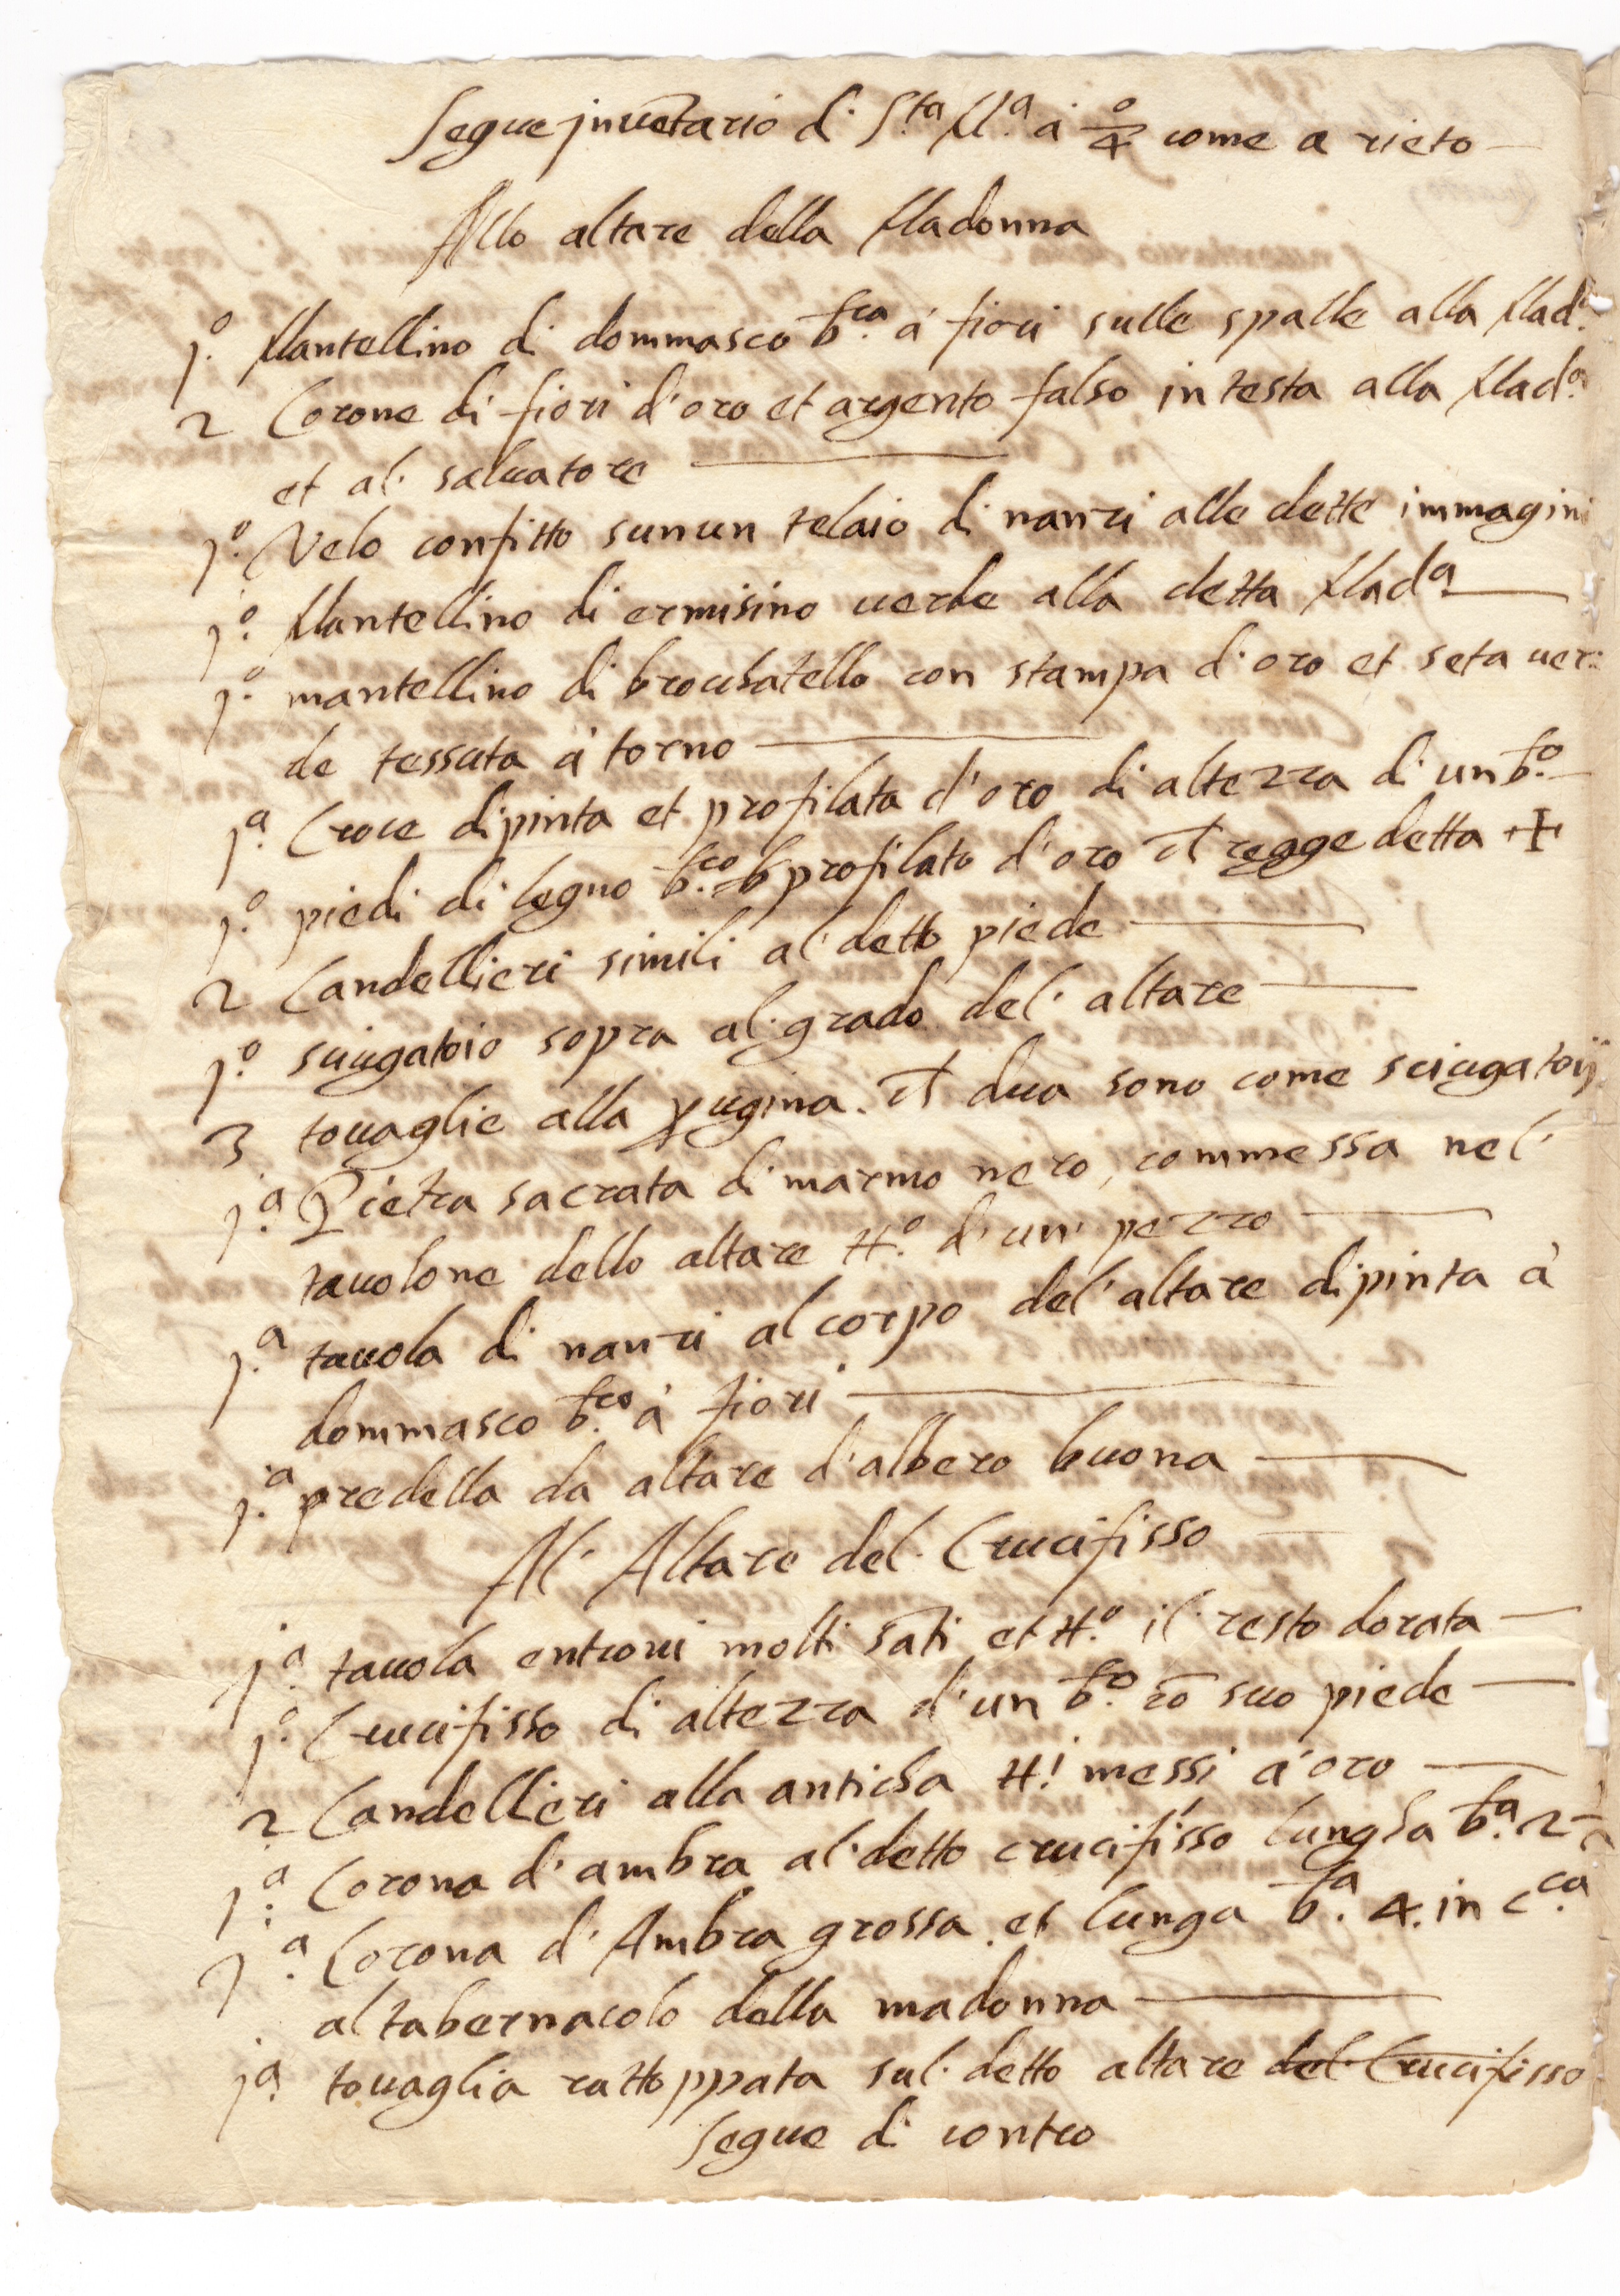 Segue jnuētario di S.ta M.a à o/4 come a rieto
Allo altare della Madonna
j.o Mantellino di dommasco b.co à fiori sulle spalle alla Mad.a
2 Corone di fiori d'oro et argento falso in testa alla Mad.a
et al saluatore
j.o Velo confitto sunun telaio di nanzi alle dette immagini
j.o Mantellino di ermisino uerde alla detta Mad.a
j.o mantellino di brochatello con stampa d'oro et seta uer:
de tessuta à torno
j.a Croce dipinta et profilata d'oro di altezza d'un b.o
j.o piedi di legno b.co profilato d'oro regge detta +
2 Candellieri simili al detto piede
j.o sciugatoio sopra al grado del altare
3 touaglie alla dua sono come sciugatoij
j.a Pietra sacrata di marmo nero, commessa nel
tauolone dello altare tt.o d'un pezzo
j.a tauola di nanzi al corpo del altare dipinta à
dommasco b.co à fiori
j.a predella da altare d'albero buona
Al Altare del Crucifisso
j.a tauola entroui molti sāti et tt.o il resto dorata
j.o Crucifisso di altezza d'un b.o cō suo piede
2 Candellieri alla anticha tt.i messi à oro
j.a Corona d'ambra al detto crucifisso lungha b.a 2
j.a Corona d'Ambra grossa et lunga b.a 4. in c.ca
al tabernacolo della madonna
j.a touaglia rattoppata sul detto altare del Crucifisso
segue di contro